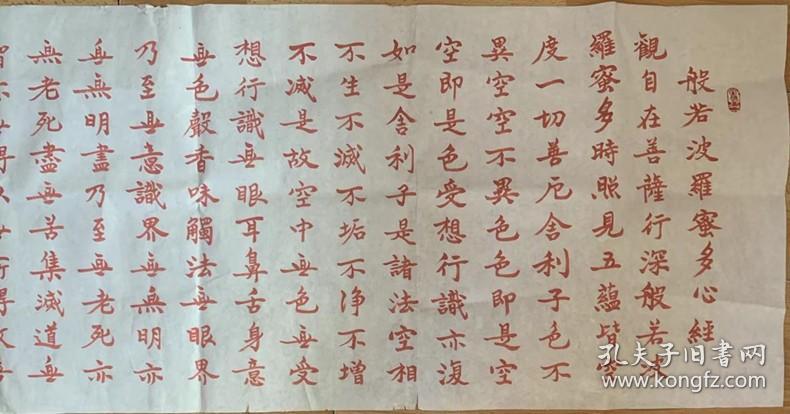 般若波羅蜜多心經
觀自在菩薩行深般若波
羅蜜多時照見五蘊皆空
度一切善厄舍利子色不
異空空不異色色即是空
空即是色受想行識亦復
如是舍利子是諸法空相
不生不滅不垢不淨不增
不減是故空中無色無受
想行識無眼耳鼻舌身意
無色聲香味觸法無眼界
乃至無意識界無無明亦
無無明盡乃至無老死亦
無老死盡無苦集滅道無
孔夫子旧书网
www.kongfz.com